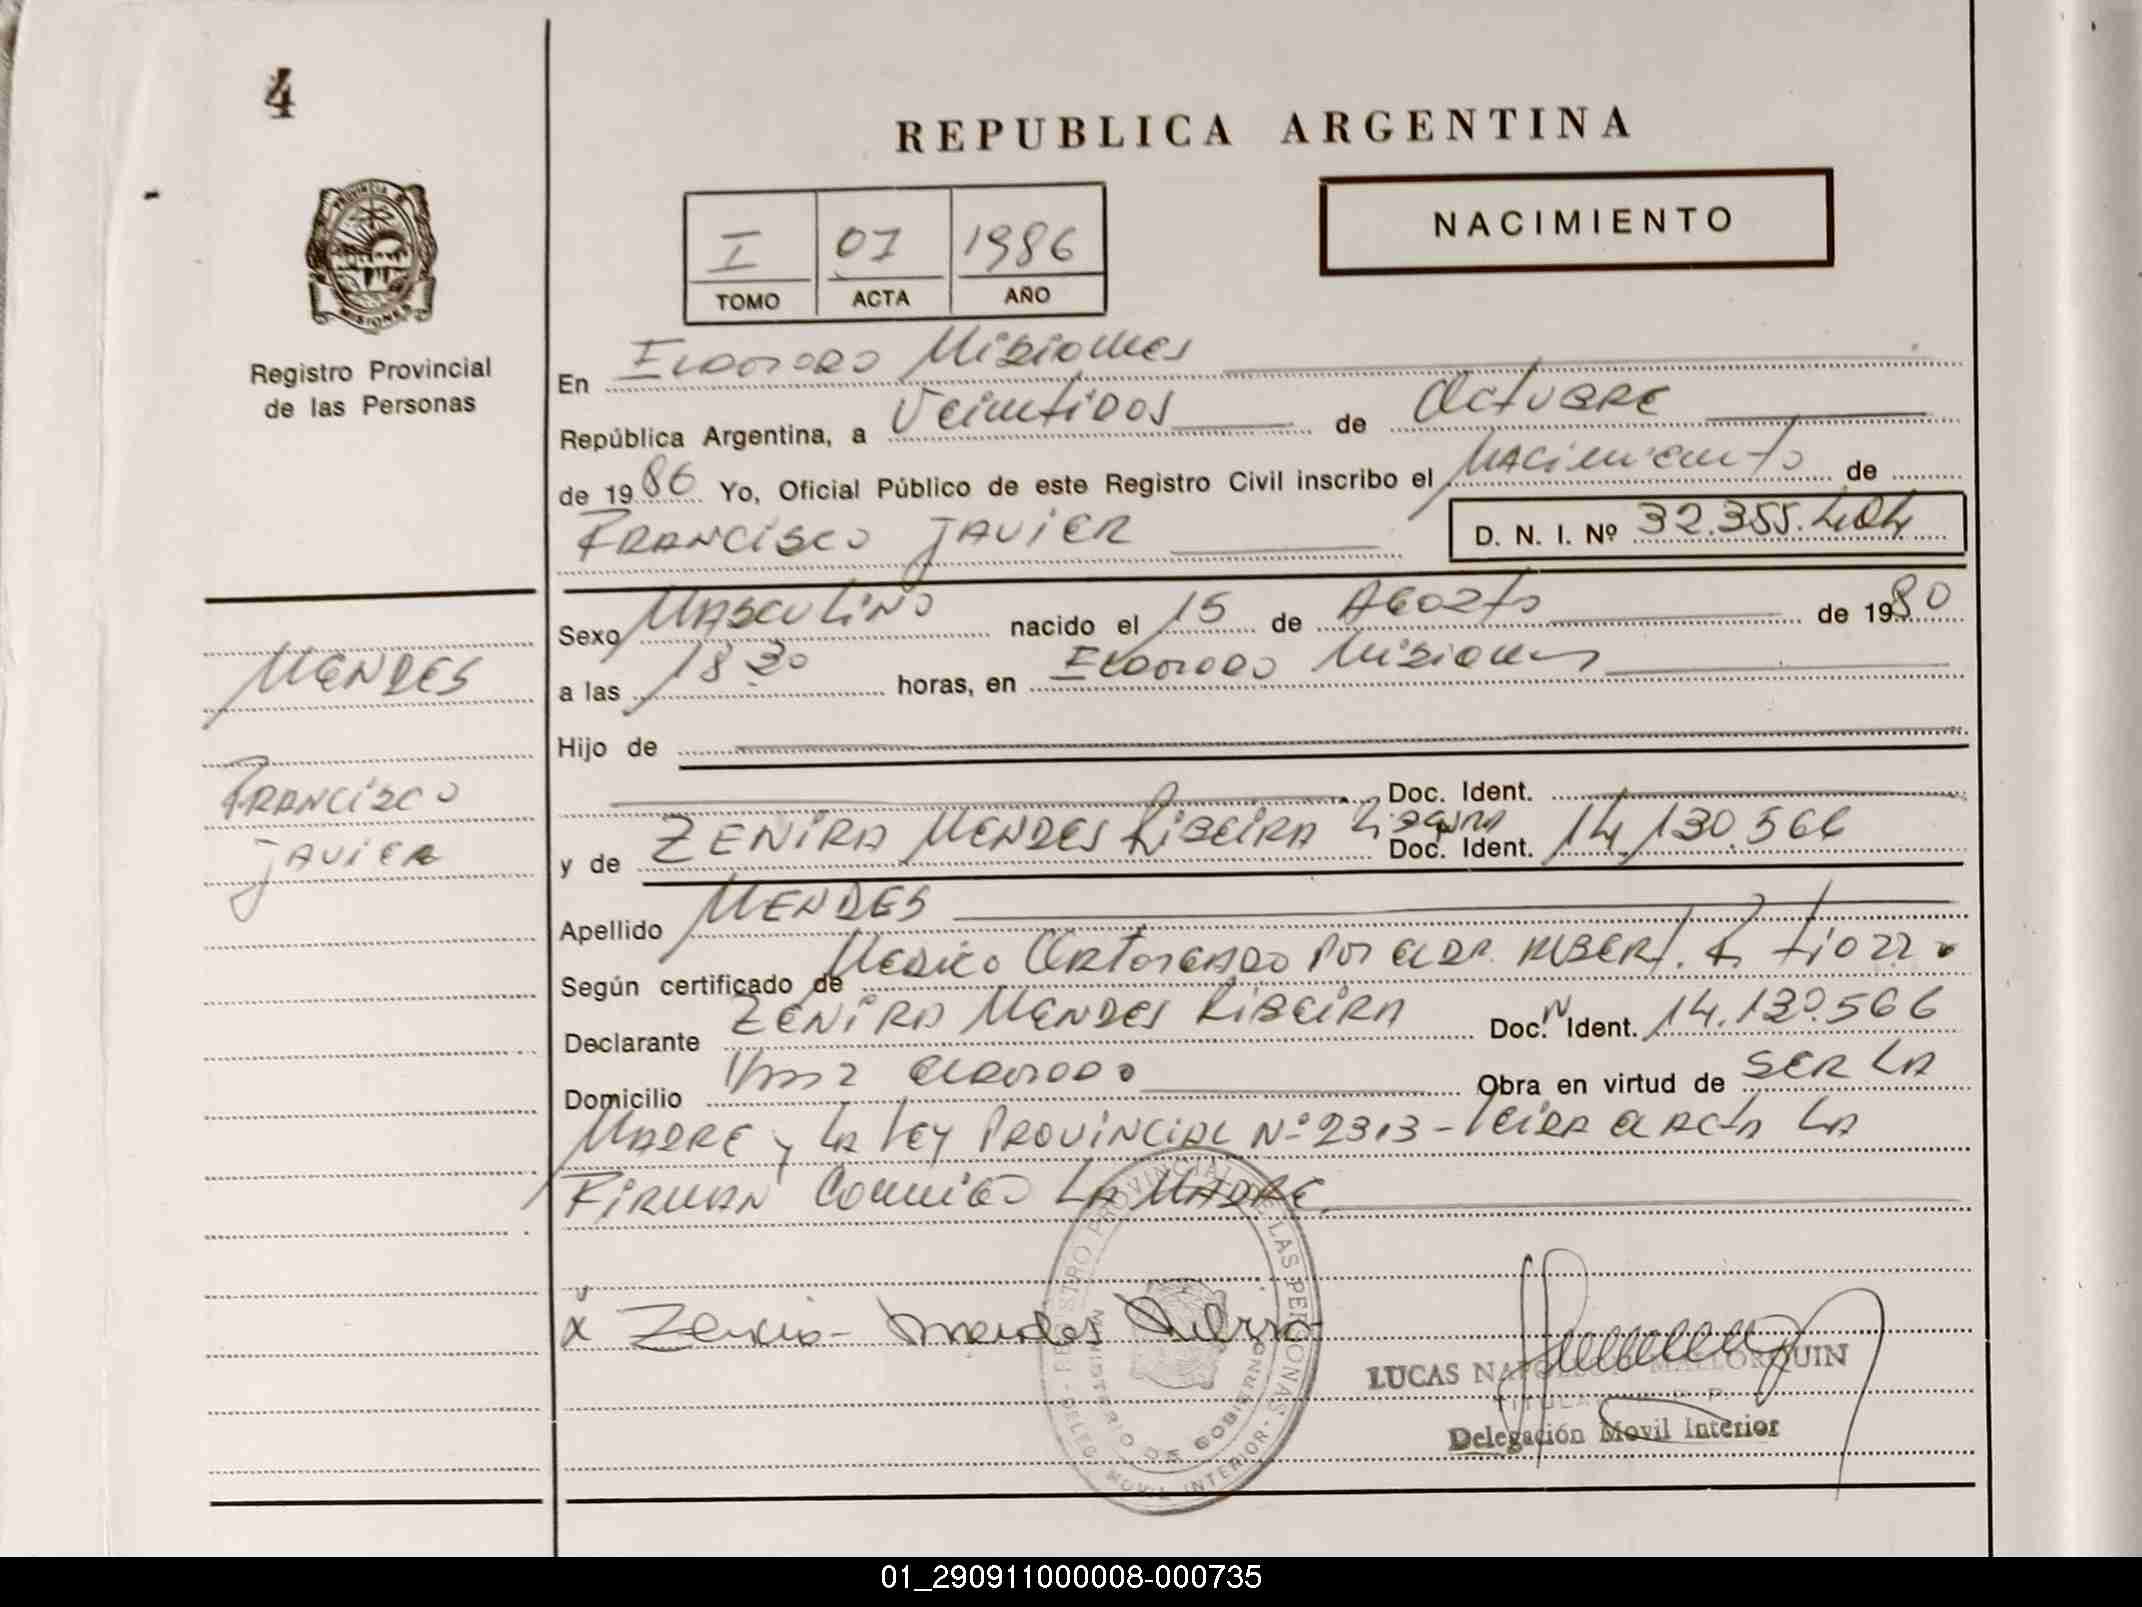 4
REPUBLICA ARGENTINA
NACIMIENTO
I 07 1986
TOMO ACTA AÑO
PROVINCIA DE
MISIONES
Registro Provincial
de las Personas
En Eldorado Misiones
República Argentina, a Veintidos de Octubre
de 1986 Yo, Oficial Público de este Registro Civil inscribo el Nacimiento de
Francisco Javier D. N. I. Nº 32.355.404
Sexo Masculino nacido el 15 de Agosto de 1980
a las 18 30 horas, en Eldorado Misiones
Hijo de
Doc. Ident.
y de Zenira Mendes Ribeira Doc. Ident. 14.130.566
Apellido Mendes
Según certificado de Medico Otorgado Por el Dr.
Declarante Zenira Mendes Ribeira Doc. N Ident. 14.130.566
Domicilio Eldorado Obra en virtud de ser la
Madre y la Ley Provincial Nº 2313 - leida el acta la
Firman Conmigo La Madre
MENDES
Francisco
Javier
x Zenira Mendes Ribeira
REGISTRO PROVINCIAL DE LAS PERSONAS
MINISTERIO DE GOBIERNO
DELEG. MOVIL INTERIOR
LUCAS NAPOLEON MALLORQUIN
TITULAR R. P.
Delegación Movil Interior
01_290911000008-000735